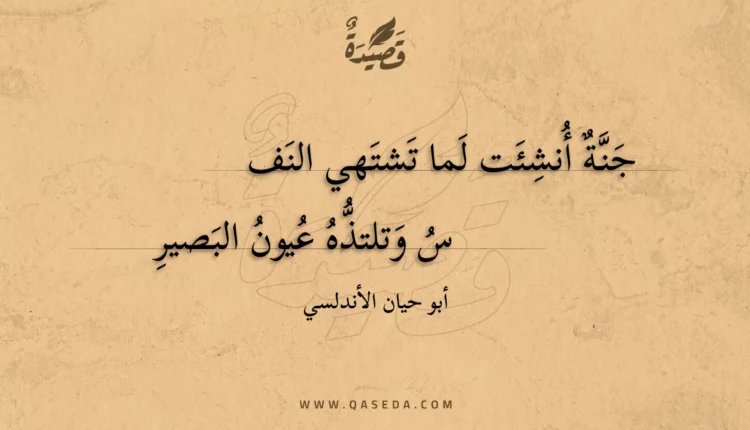 قَصِيدَةٌ
جَنَّةٌ أُنشِئَت لَما تَشتَهي النَف
سُ وَتلتذُّهُ عُيونُ البَصيرِ
أبو حيان الأندلسي
WWW.QASEDA.COM